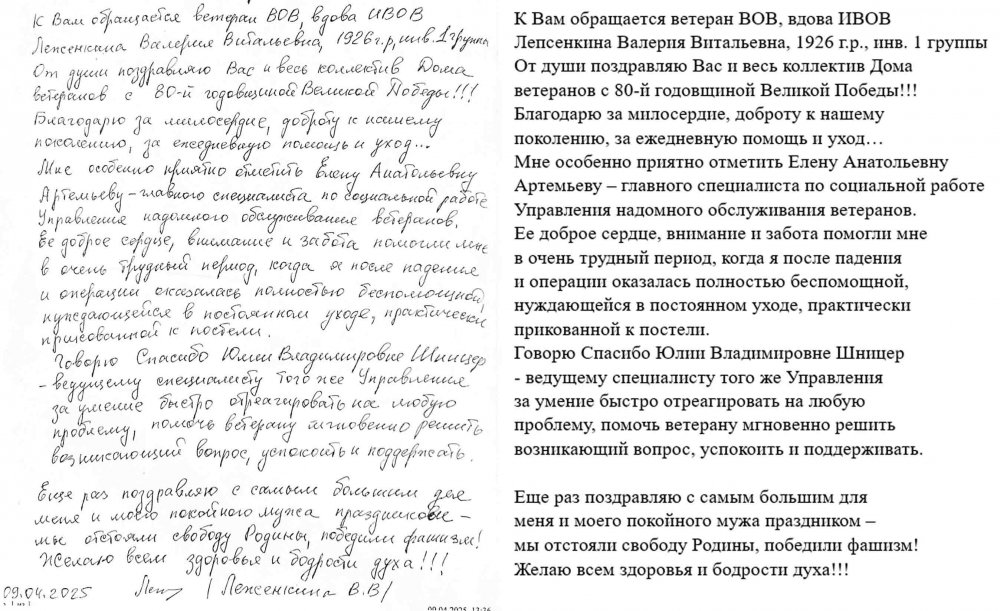 К Вам обращается ветеран ВОВ, вдова ИВОВ
Леженкина Валерия Витальевна, 1926 г.р, инв. 1 группы
От души поздравляю Вас и весь коллектив Дома
ветеранов с 80-й годовщиной Великой Победы!!!
Благодарю за милосердие, доброту к нашему
поколению, за ежедневную помощь и уход...
Мне особенно приятно отметить Елену Анатольевну
Артемьеву – главного специалиста по социальной работе
Управления надомного обслуживания ветеранов.
Ее доброе сердце, внимание и забота помогли мне
в очень трудный период, когда я после падения
и операции оказалась полностью беспомощной,
нуждающейся в постоянном уходе, практически
прикованной к постели.
Говорю Спасибо Юлии Владимировне Шницер
- ведущему специалисту того же Управления
за умение быстро отреагировать на любую
проблему, помочь ветерану мгновенно решить
возникающий вопрос, успокоить и поддержать.
Еще раз поздравляю с самым большим для
меня и моего покойного мужа праздником –
мы отстояли свободу Родины, победили фашизм!
Желаю всем здоровья и бодрости духа!!!
09.04.2025 / Леженкина В.В/
К Вам обращается ветеран ВОВ, вдова ИВОВ
Лепсенкина Валерия Витальевна, 1926 г.р., инв. 1 группы
От души поздравляю Вас и весь коллектив Дома
ветеранов с 80-й годовщиной Великой Победы!!!
Благодарю за милосердие, доброту к нашему
поколению, за ежедневную помощь и уход…
Мне особенно приятно отметить Елену Анатольевну
Артемьеву – главного специалиста по социальной работе
Управления надомного обслуживания ветеранов.
Ее доброе сердце, внимание и забота помогли мне
в очень трудный период, когда я после падения
и операции оказалась полностью беспомощной,
нуждающейся в постоянном уходе, практически
прикованной к постели.
Говорю Спасибо Юлии Владимировне Шницер
- ведущему специалисту того же Управления
за умение быстро отреагировать на любую
проблему, помочь ветерану мгновенно решить
возникающий вопрос, успокоить и поддерживать.
Еще раз поздравляю с самым большим для
меня и моего покойного мужа праздником –
мы отстояли свободу Родины, победили фашизм!
Желаю всем здоровья и бодрости духа!!!